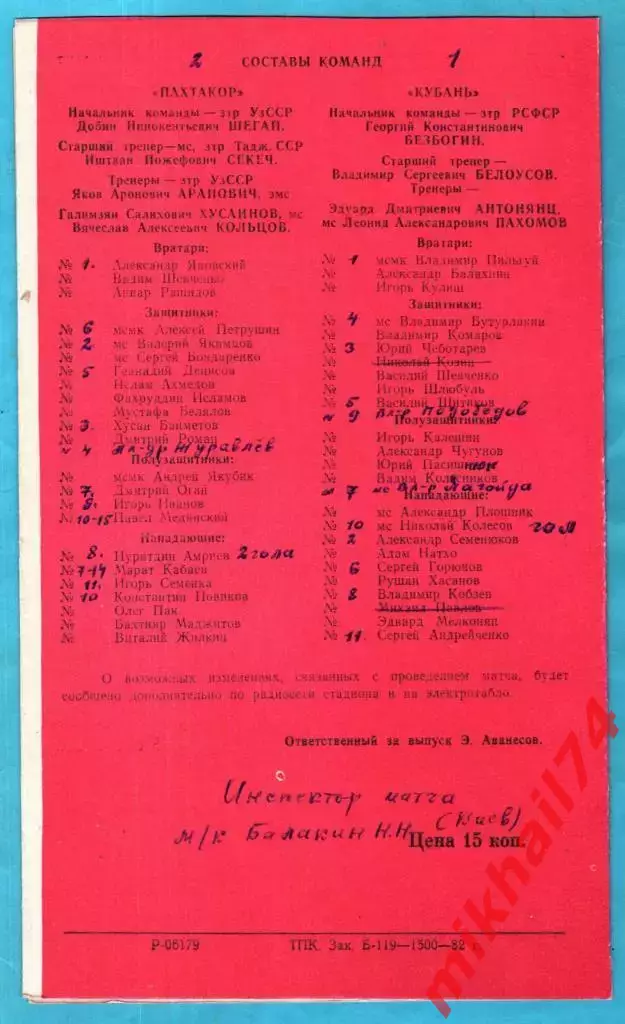 2 СОСТАВЫ КОМАНД 1
«ПАХТАКОР»
Начальник команды — зтр УзССР
Добин Иннокентьевич ШЕГАЙ.
Старший тренер—мс, зтр Тадж. ССР
Иштван Йожефович СЕКЕЧ.
Тренеры — зтр УзССР
Яков Аронович АРАПОВИЧ, змс
Галимзян Салихович ХУСАИНОВ, мс
Вячеслав Алексеевич КОЛЬЦОВ.
Вратари:
№ 1. Александр Яновский
№ Вадим Шевченко
№ Анвар Рашидов
Защитники:
№ 6 мсмк Алексей Петрушин
№ 2 мс Валерий Якимцов
№ мс Сергей Бондаренко
№ 5 Геннадий Денисов
№ Ислам Ахмедов
№ Фахруддин Исламов
№ Мустафа Белялов
№ 3. Хусан Байметов
№ Дмитрий Роман
№ 4 Ал-др Журавлёв
Полузащитники:
№ мсмк Андрей Якубик
№ 7. Дмитрий Оган
№ 9. Игорь Иванов
№ 10-15 Павел Мединский
Нападающие:
№ 8. Нуритдин Амриев 2 гола
№ 7-14 Марат Кабаев
№ 11. Игорь Семенка
№ 10 Константин Новиков
№ Олег Пак
№ Бахтияр Маджитов
№ Виталий Жилкин
«КУБАНЬ»
Начальник команды — зтр РСФСР
Георгий Константинович
БЕЗБОГИН.
Старший тренер —
Владимир Сергеевич БЕЛОУСОВ.
Тренеры —
Эдуард Дмитриевич АНТОНЯНЦ,
мс Леонид Александрович ПАХОМОВ
Вратари:
№ 1 мсмк Владимир Пильгуй
№ Александр Балахнин
№ Игорь Кулиш
Защитники:
№ 4 мс Владимир Бутурлакин
№ Владимир Комаров
№ 3 Юрий Чеботарев
№ Николай Козин
№ Василий Шевченко
№ Игорь Шлюбуль
№ 5 Василий Шитиков
№ 9 Вл-р Подобедов
Полузащитники:
№ Игорь Калешин
№ Александр Чугунов
№ Юрий Пасишнюк
№ Вадим Колесников
№ 7 мс Вл-р Лагойда
Нападающие:
№ мс Александр Плошник
№ 10 мс Николай Колесов гол
№ 2 Александр Семенюков
№ Адам Натхо
№ 6 Сергей Горюнов
№ Рушан Хасанов
№ 8 Владимир Кобзев
№ Михаил Павлов
№ Эдвард Мелконян
№ 11. Сергей Андрейченко
О возможных изменениях, связанных с проведением матча, будет
сообщено дополнительно по радиосети стадиона и на электротабло.
Ответственный за выпуск Э. Аванесов.
Инспектор матча
м/к Балакин Н.Н. (Киев)
Цена 15 коп.
Р-06179 ТПК. Зак. Б-119—1500—82
mikhail74